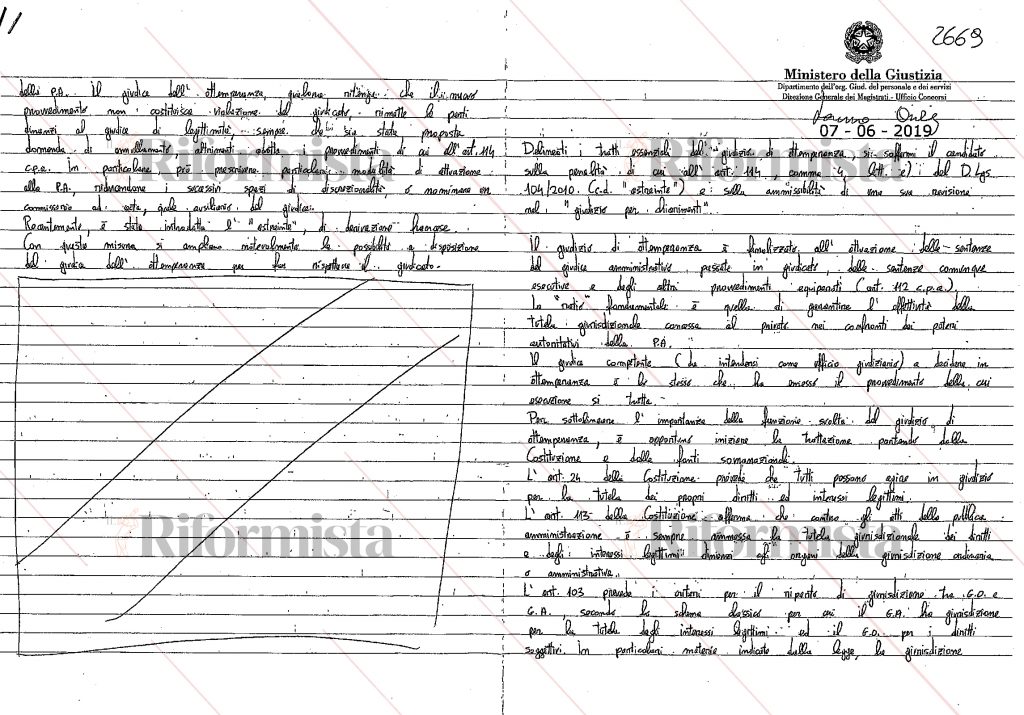 //
della P.A. Il giudice dell'ottemperanza, qualora ritenga che il nuovo
provvedimento non costituisca violazione del giudicato, rimette le parti
dinanzi al giudice di legittimità, sempre che sia stata proposta
domanda di annullamento, altrimenti adotta i provvedimenti di cui all'art. 114
c.p.a. In particolare può prescrivere particolari modalità di attuazione
alla P.A., riducendone i successivi spazi di discrezionalità o nominare un
commissario ad acta, quale ausiliario del giudice.
Recentemente, è stata introdotta l'"astreinte", di derivazione francese.
Con questa misura si ampliano notevolmente le possibilità a disposizione
del giudice dell'ottemperanza per far rispettare il giudicato.
2669
Ministero della Giustizia
Dipartimento dell'org. Giud. del personale e dei servizi
Direzione Generale dei Magistrati - Ufficio Concorsi
07 - 06 - 2019
Delineati i tratti essenziali del "giudizio di ottemperanza" si soffermi il candidato
sulla penalità di cui all'art. 114, comma 4, lett. e) del D.Lgs.
104/2010 (c.d. "astreinte") e sulla ammissibilità di una sua revisione
nel "giudizio per chiarimenti".
Il giudizio di ottemperanza è finalizzato all'attuazione delle sentenze
del giudice amministrativo passate in giudicato, delle sentenze comunque
esecutive e degli altri provvedimenti equiparati (art. 112 c.p.a.).
La "ratio" fondamentale è quella di garantire l'effettività della
tutela giurisdizionale concessa al privato nei confronti dei poteri
autoritativi della P.A.
Il giudice competente (da intendersi come ufficio giudiziario) a decidere in
ottemperanza è lo stesso che ha emesso il provvedimento della cui
esecuzione si tratta.
Per sottolineare l'importanza della funzione svolta dal giudizio di
ottemperanza, è opportuno iniziare la trattazione partendo dalla
Costituzione e dalle fonti sovranazionali.
L'art. 24 della Costituzione prevede che tutti possano agire in giudizio
per la tutela dei propri diritti ed interessi legittimi.
L'art. 113 della Costituzione afferma che contro gli atti della pubblica
amministrazione è sempre ammessa la tutela giurisdizionale dei diritti
e degli interessi legittimi dinanzi agli organi della giurisdizione ordinaria
o amministrativa.
L'art. 103 prevede i criteri per il riparto di giurisdizione tra G.O. e
G.A., secondo lo schema classico per cui il G.A. ha giurisdizione
per la tutela degli interessi legittimi ed il G.O. per i diritti
soggettivi. In particolari materie indicate dalla legge, la giurisdizione
Riformista
Riformista
Riformista
Riformista